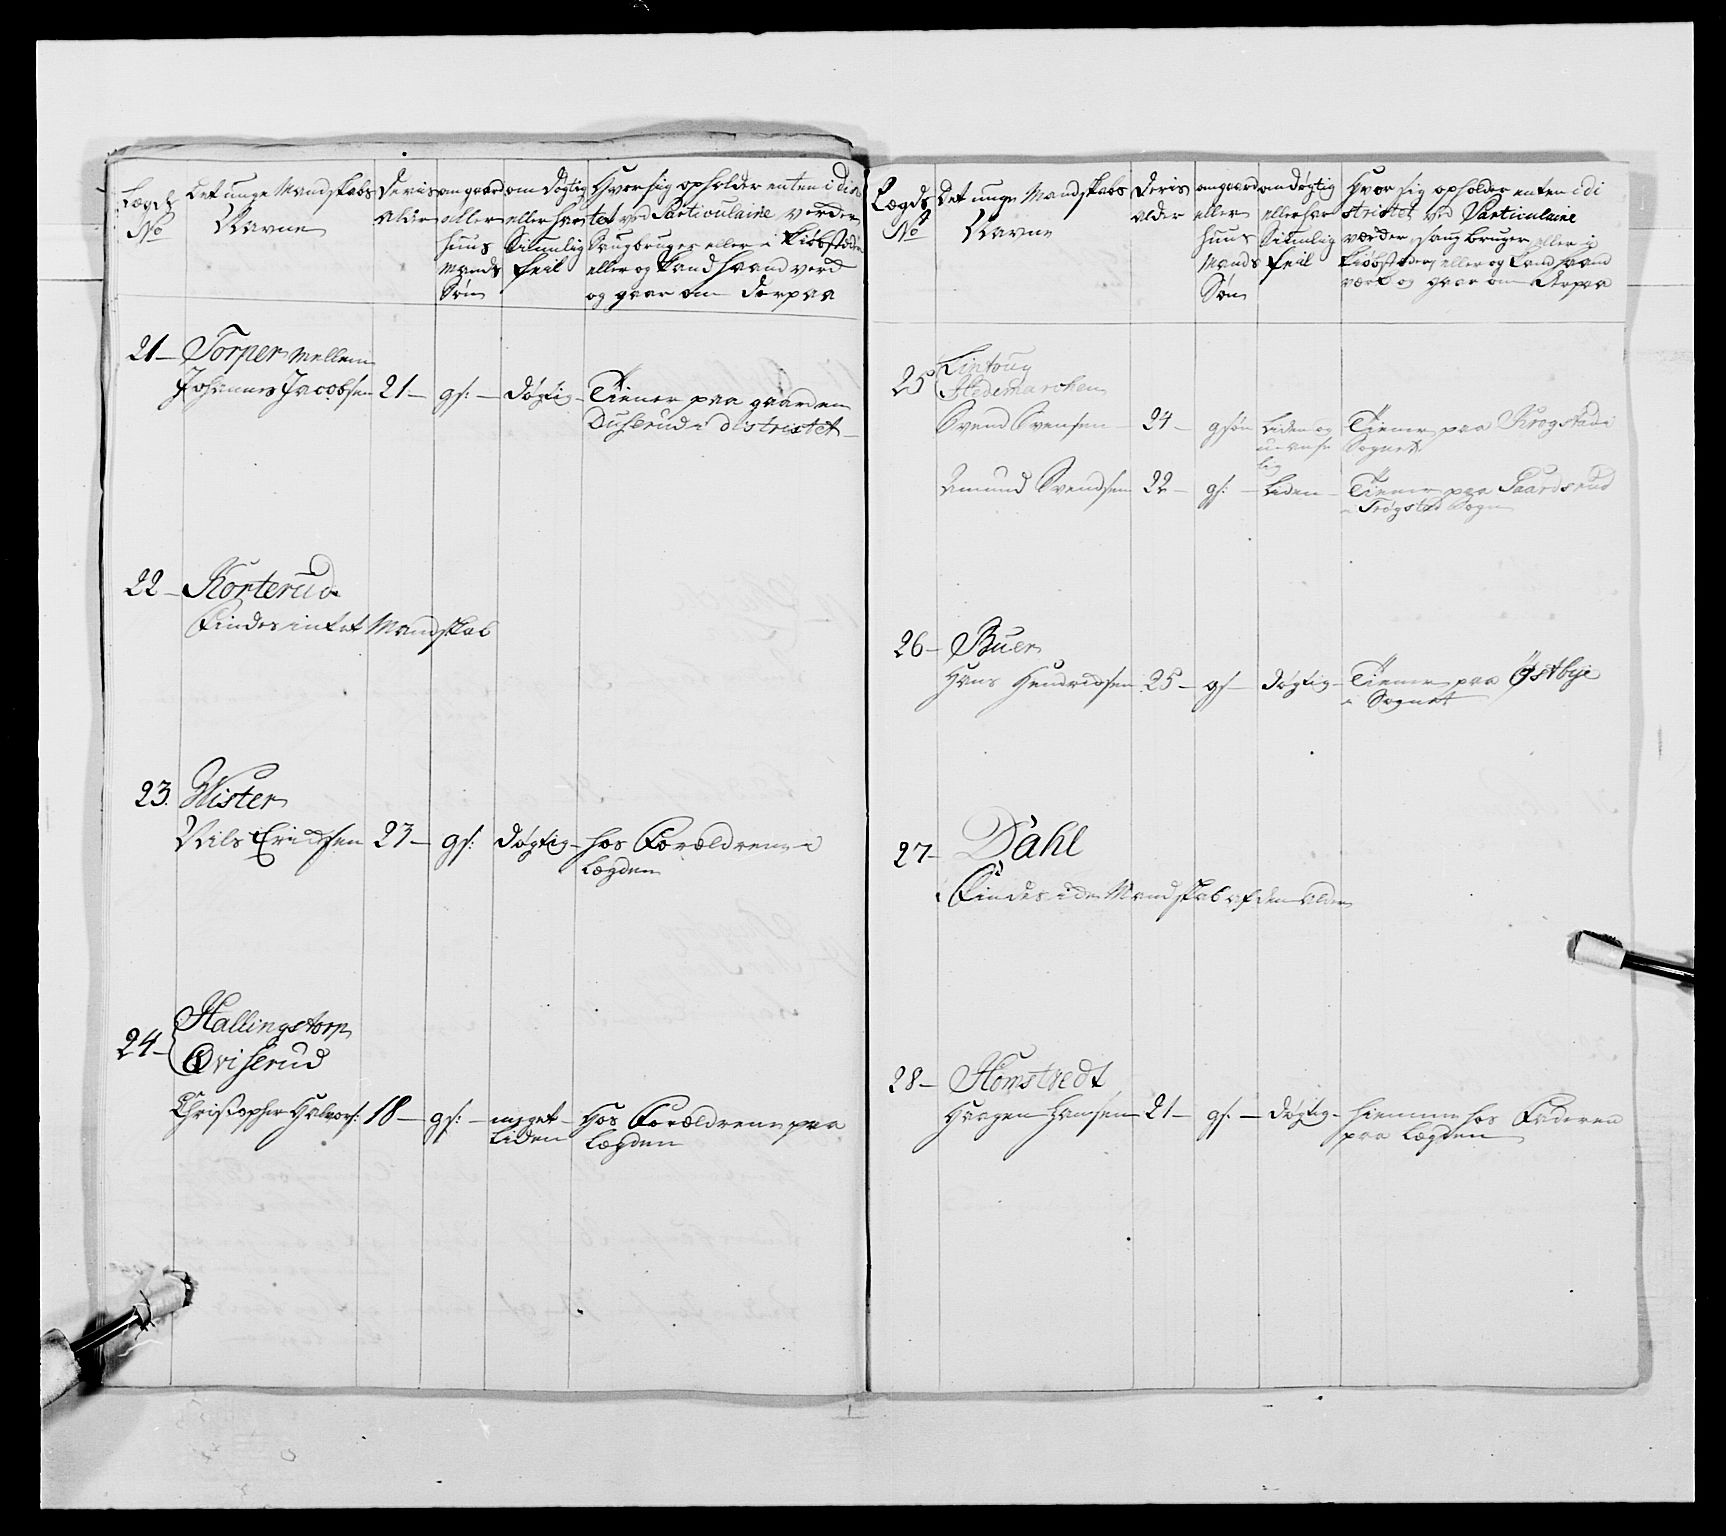 Lægds
No
Det unge Mandskabs
Navne
Deris
Alder
om gaard
eller
huus
Mands
Søn
om døgtig
eller har
Siunlig
feil
Hvor sig opholder enten i dis
tet ved Particulaire verder
Saugbruger eller i Kiøbstæder
eller og Land haandverk
og gaar om derpaa
21 — Torper Mellem
Johannes Jacobsen 21 — gs: — døgtig — Tiener paa gaarden
Duserud i distrixtet —
22 — Korterud
Findes intet Mandskab
23. Wister
Nils Erichsen 23 — gs: døgtig — hos Forældrene i
Lægden
24 — Hallingstorp
Qviserud
Christopher Halvors: 18 — gs: — meget Liden — Hos Forældrene paa
Lægden
Lægds
No
Det unge Mandskabs
Navne
Deris
alder
om gaard
eller
huus
Mands
Søn
om døgtig
eller har
Siunlig
feil
Hvor sig opholder enten i di
strictet ved Particulaire
værder, saugbruger eller i
Kiøbstæder, eller og Land haand
værk og gaar om derpaa
25 Lintoug
Hedemarchen
Svend Svensen — 24 — gsøn Liden og uanse lig Tiener paa Krogstad i
Sognet
Amund Svendsen 22 — gs: — Liden — Tiener paa Gaardsrud
i Trøgstad Sogn
26 — Buer
Hans Hendrichsen 25 — gs — døgtig — Tiener paa Østbye
i Sognet
27 — Dahl
Findes iche Mandskab af den alder
28 — Homstvedt
Haagen Hansen 21 — gs. — døgtig — hiemme hos Faderen
paa Lægden